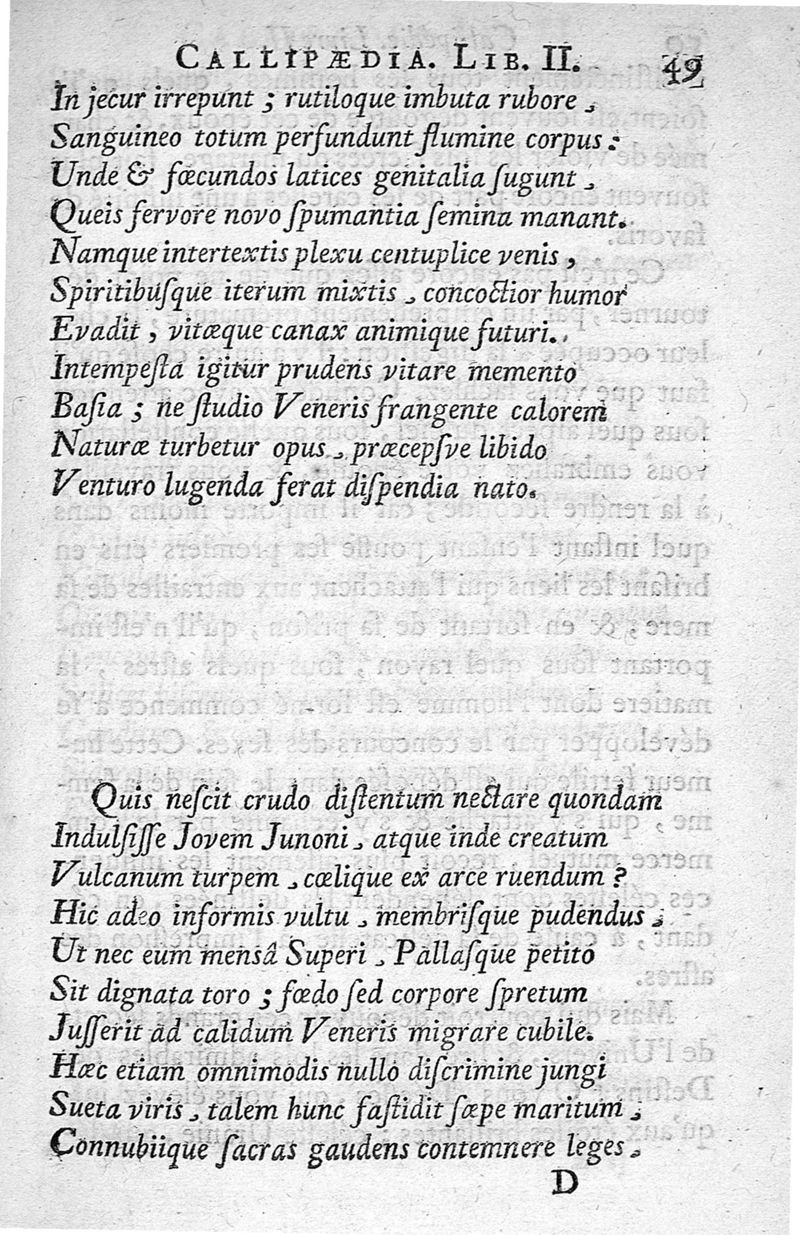 CALLIPÆDIA. LIB. II. 49
In jecur irrepunt ; rutiloque imbuta rubore ,
Sanguineo totum perfundunt flumine corpus :
Unde & fœcundos latices genitalia ſugunt ,
Queis fervore novo ſpumantia ſemina manant.
Namque intertextis plexu centuplice venis ,
Spiritibuſque iterum mixtis , concoctior humor
Evadit , vitæque canax animique futuri.
Intempeſta igitur prudens vitare memento
Baſia ; ne ſtudio Veneris frangente calorem
Naturæ turbetur opus , præcepſve libido
Venturo lugenda ferat diſpendia nato.
Quis neſcit crudo diſtentum nectare quondam
Indulſiſſe Jovem Junoni , atque inde creatum
Vulcanum turpem , cœlique ex arce ruendum ?
Hic adeo informis vultu , membriſque pudendus ;
Ut nec eum mensâ Superi , Pallaſque petito
Sit dignata toro ; fœdo ſed corpore ſpretum
Juſſerit ad calidum Veneris migrare cubile.
Hæc etiam omnimodis nullo diſcrimine jungi
Sueta viris , talem hunc faſtidit ſæpe maritum ,
Connubiique ſacras gaudens contemnere leges ,
D